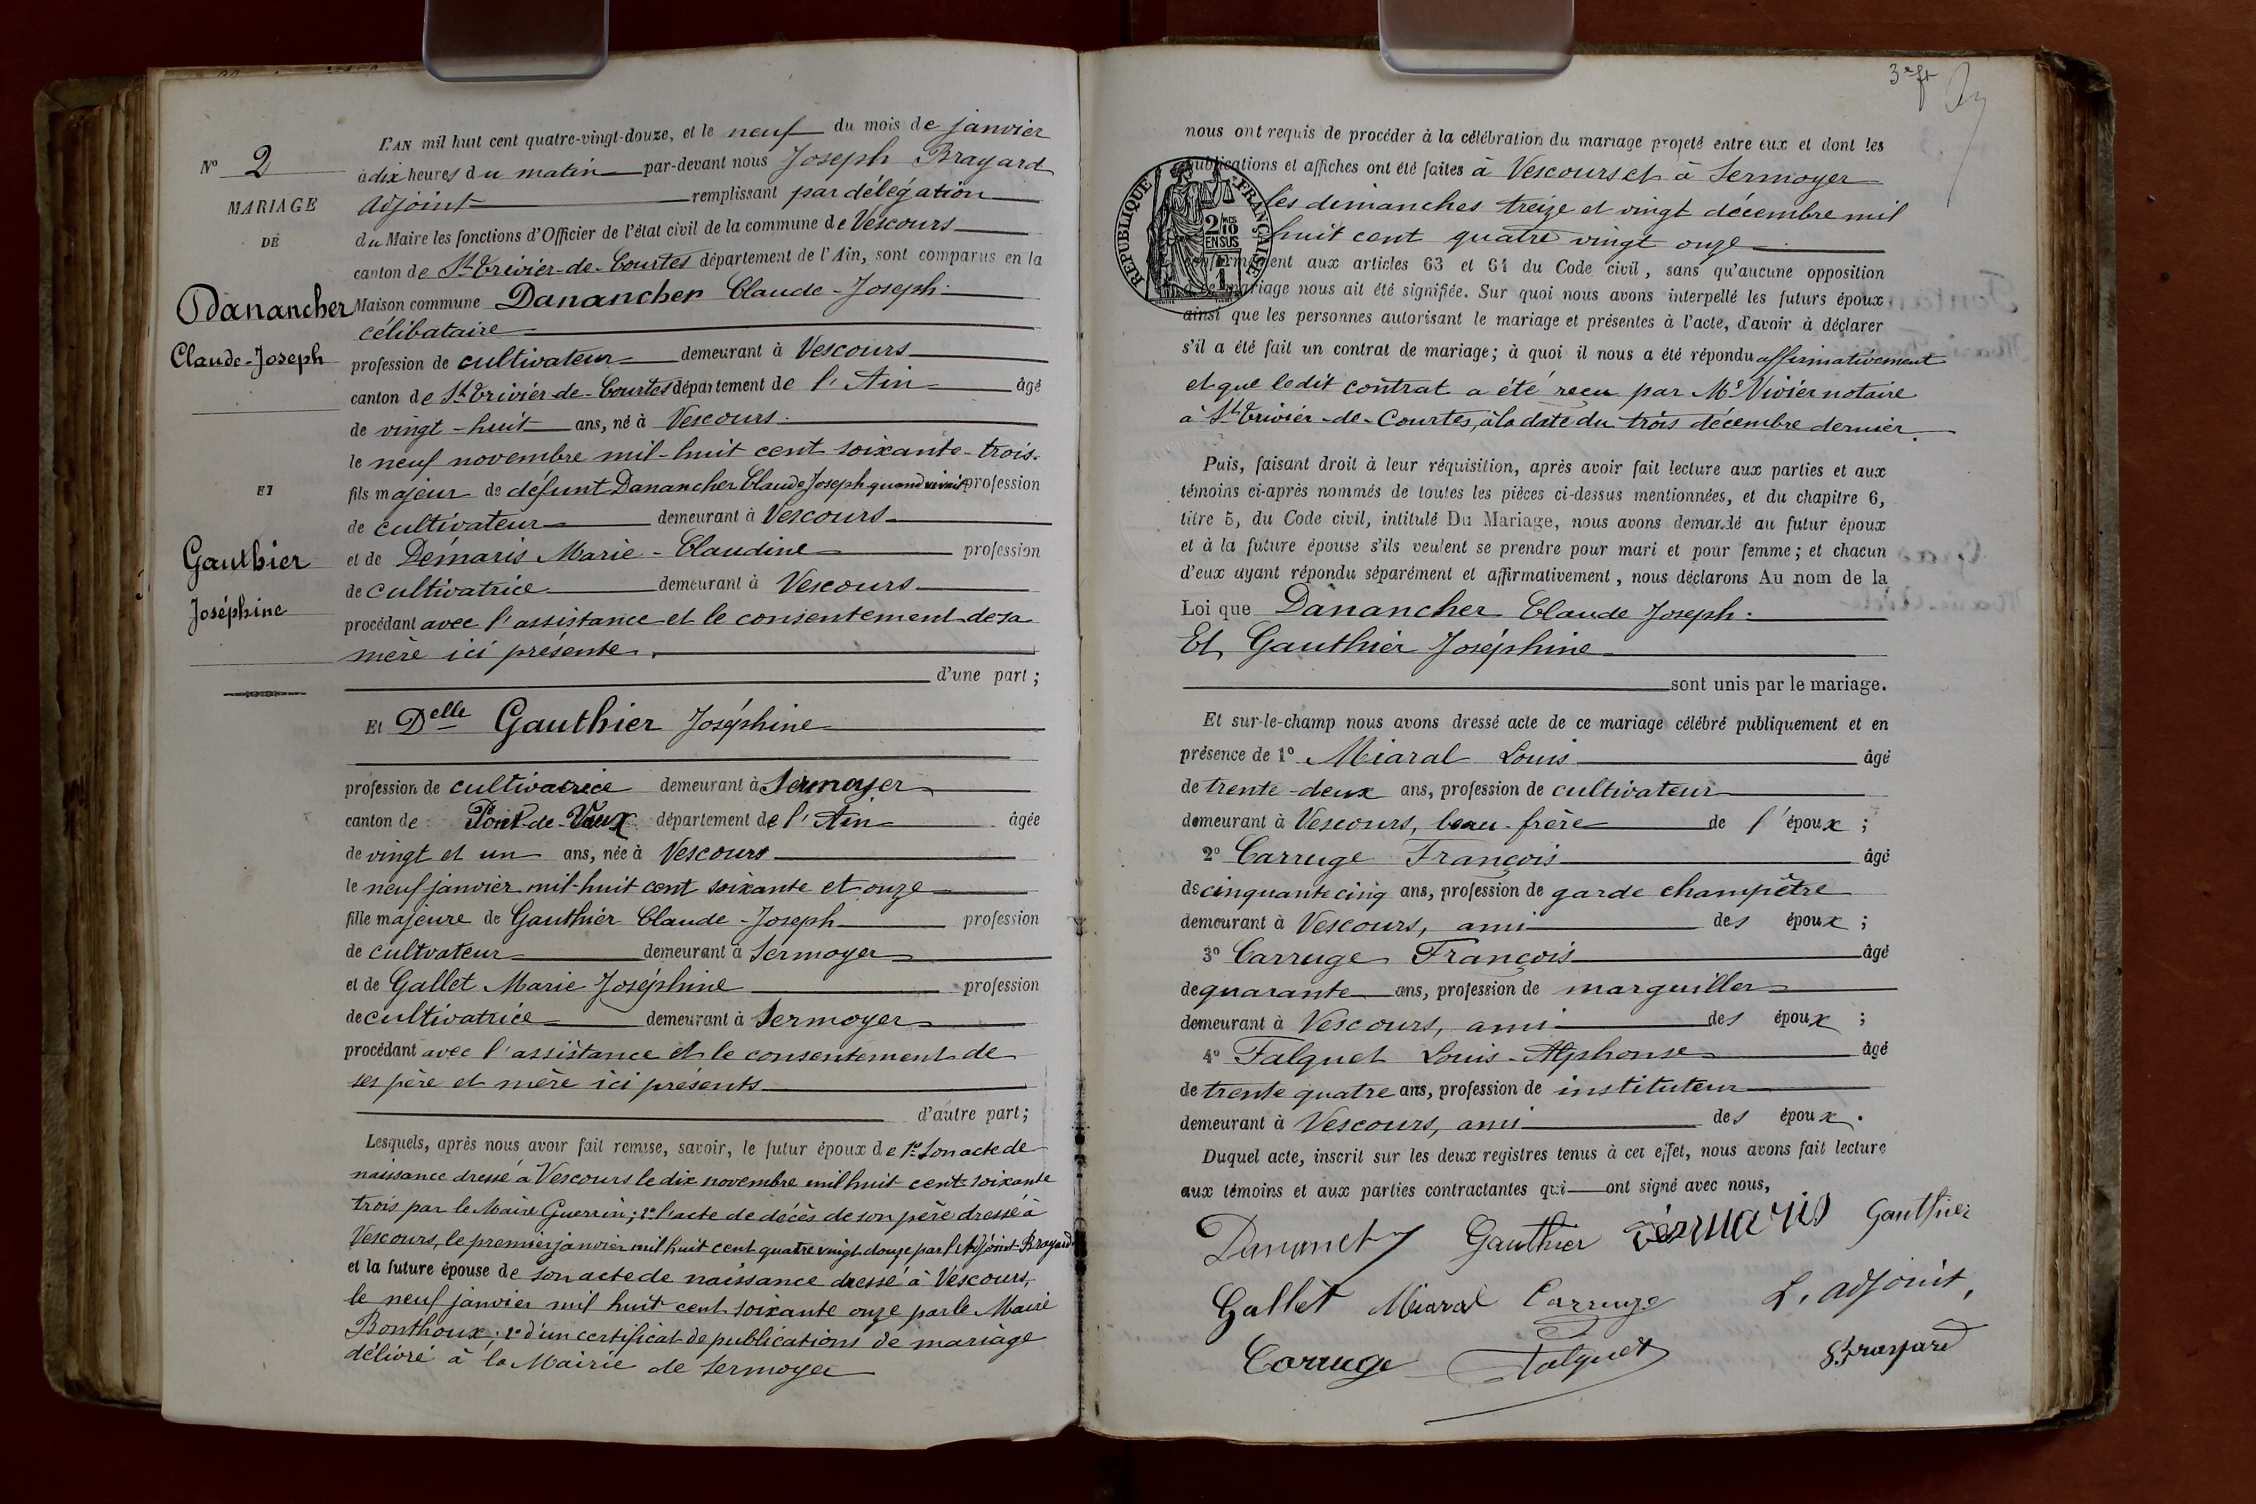 N° 2
MARIAGE
DE
Danancher
Claude-Joseph
ET
Gauthier
Joséphine
L'AN mil huit cent quatre-vingt-douze, et le neuf du mois de janvier
à dix heures du matin par-devant nous Joseph Brayard
adjoint remplissant par délégation
du Maire les fonctions d'Officier de l'état civil de la commune de Vescours
canton de St Trivier-de-Courtes département de l'Ain, sont comparus en la
Maison commune Danancher Claude-Joseph
célibataire
profession de cultivateur demeurant à Vescours
canton de St Trivier-de-Courtes département de l'Ain âgé
de vingt-huit ans, né à Vescours
le neuf novembre mil-huit cent soixante-trois
fils majeur de défunt Danancher Claude Joseph quand vivait profession
de cultivateur demeurant à Vescours
et de Démaris Marie-Claudine profession
de cultivatrice demeurant à Vescours
procédant avec l'assistance et le consentement de sa
mère ici présente
d'une part;
Et Delle Gauthier Joséphine
profession de cultivatrice demeurant à Sermoyer
canton de Pont-de-Vaux département de l'Ain âgée
de vingt et un ans, née à Vescours
le neuf janvier mil-huit cent soixante et onze
fille majeure de Gauthier Claude-Joseph profession
de cultivateur demeurant à Sermoyer
et de Gallet Marie Joséphine profession
de cultivatrice demeurant à Sermoyer
procédant avec l'assistance et le consentement de
ses père et mère ici présents
d'autre part;
Lesquels, après nous avoir fait remise, savoir, le futur époux de 1° Son acte de
naissance dressé à Vescours le dix novembre mil huit cent soixante
trois par le Maire Guerrin; 2° l'acte de décès de son père dressé à
Vescours, le premier janvier mil huit cent quatre vingt douze par l'Adjoint Brayard
et la future épouse de son acte de naissance dressé à Vescours,
le neuf janvier mil huit cent soixante onze par le Maire
Bonthoux; 2° d'un certificat de publications de mariage
délivré à la Mairie de Sermoyer
3e ft
nous ont requis de procéder à la célébration du mariage projeté entre eux et dont les
publications et affiches ont été faites à Vescours et à Sermoyer
les dimanches treize et vingt décembre mil
huit cent quatre vingt onze
conformément aux articles 63 et 64 du Code civil, sans qu'aucune opposition
mariage nous ait été signifiée. Sur quoi nous avons interpellé les futurs époux
ainsi que les personnes autorisant le mariage et présentes à l'acte, d'avoir à déclarer
s'il a été fait un contrat de mariage; à quoi il nous a été répondu affirmativement
et que ledit contrat a été reçu par Me Vivier notaire
à St Trivier-de-Courtes, à la date du trois décembre dernier.
RÉPUBLIQUE FRANÇAISE
2/10
EN SUS
Puis, faisant droit à leur réquisition, après avoir fait lecture aux parties et aux
témoins ci-après nommés de toutes les pièces ci-dessus mentionnées, et du chapitre 6,
titre 5, du Code civil, intitulé Du Mariage, nous avons demandé au futur époux
et à la future épouse s'ils veulent se prendre pour mari et pour femme; et chacun
d'eux ayant répondu séparément et affirmativement, nous déclarons Au nom de la
Loi que Danancher Claude Joseph
Et Gauthier Joséphine
sont unis par le mariage.
Et sur-le-champ nous avons dressé acte de ce mariage célébré publiquement et en
présence de 1° Miaral Louis âgé
de trente-deux ans, profession de cultivateur
demeurant à Vescours, beau-frère de l'époux;
2° Carruge François âgé
de cinquante cinq ans, profession de garde champêtre
demeurant à Vescours, ami des époux;
3° Carruge François âgé
de quarante ans, profession de marguiller
demeurant à Vescours, ami des époux;
4° Falquet Louis-Alphonse âgé
de trente quatre ans, profession de instituteur
demeurant à Vescours, ami des époux.
Duquel acte, inscrit sur les deux registres tenus à cet effet, nous avons fait lecture
aux témoins et aux parties contractantes qui ont signé avec nous,
Gauthier Démaris Gauthier
Gallet Miaral Carruge L'adjoint,
Carruge Falquet Brayard